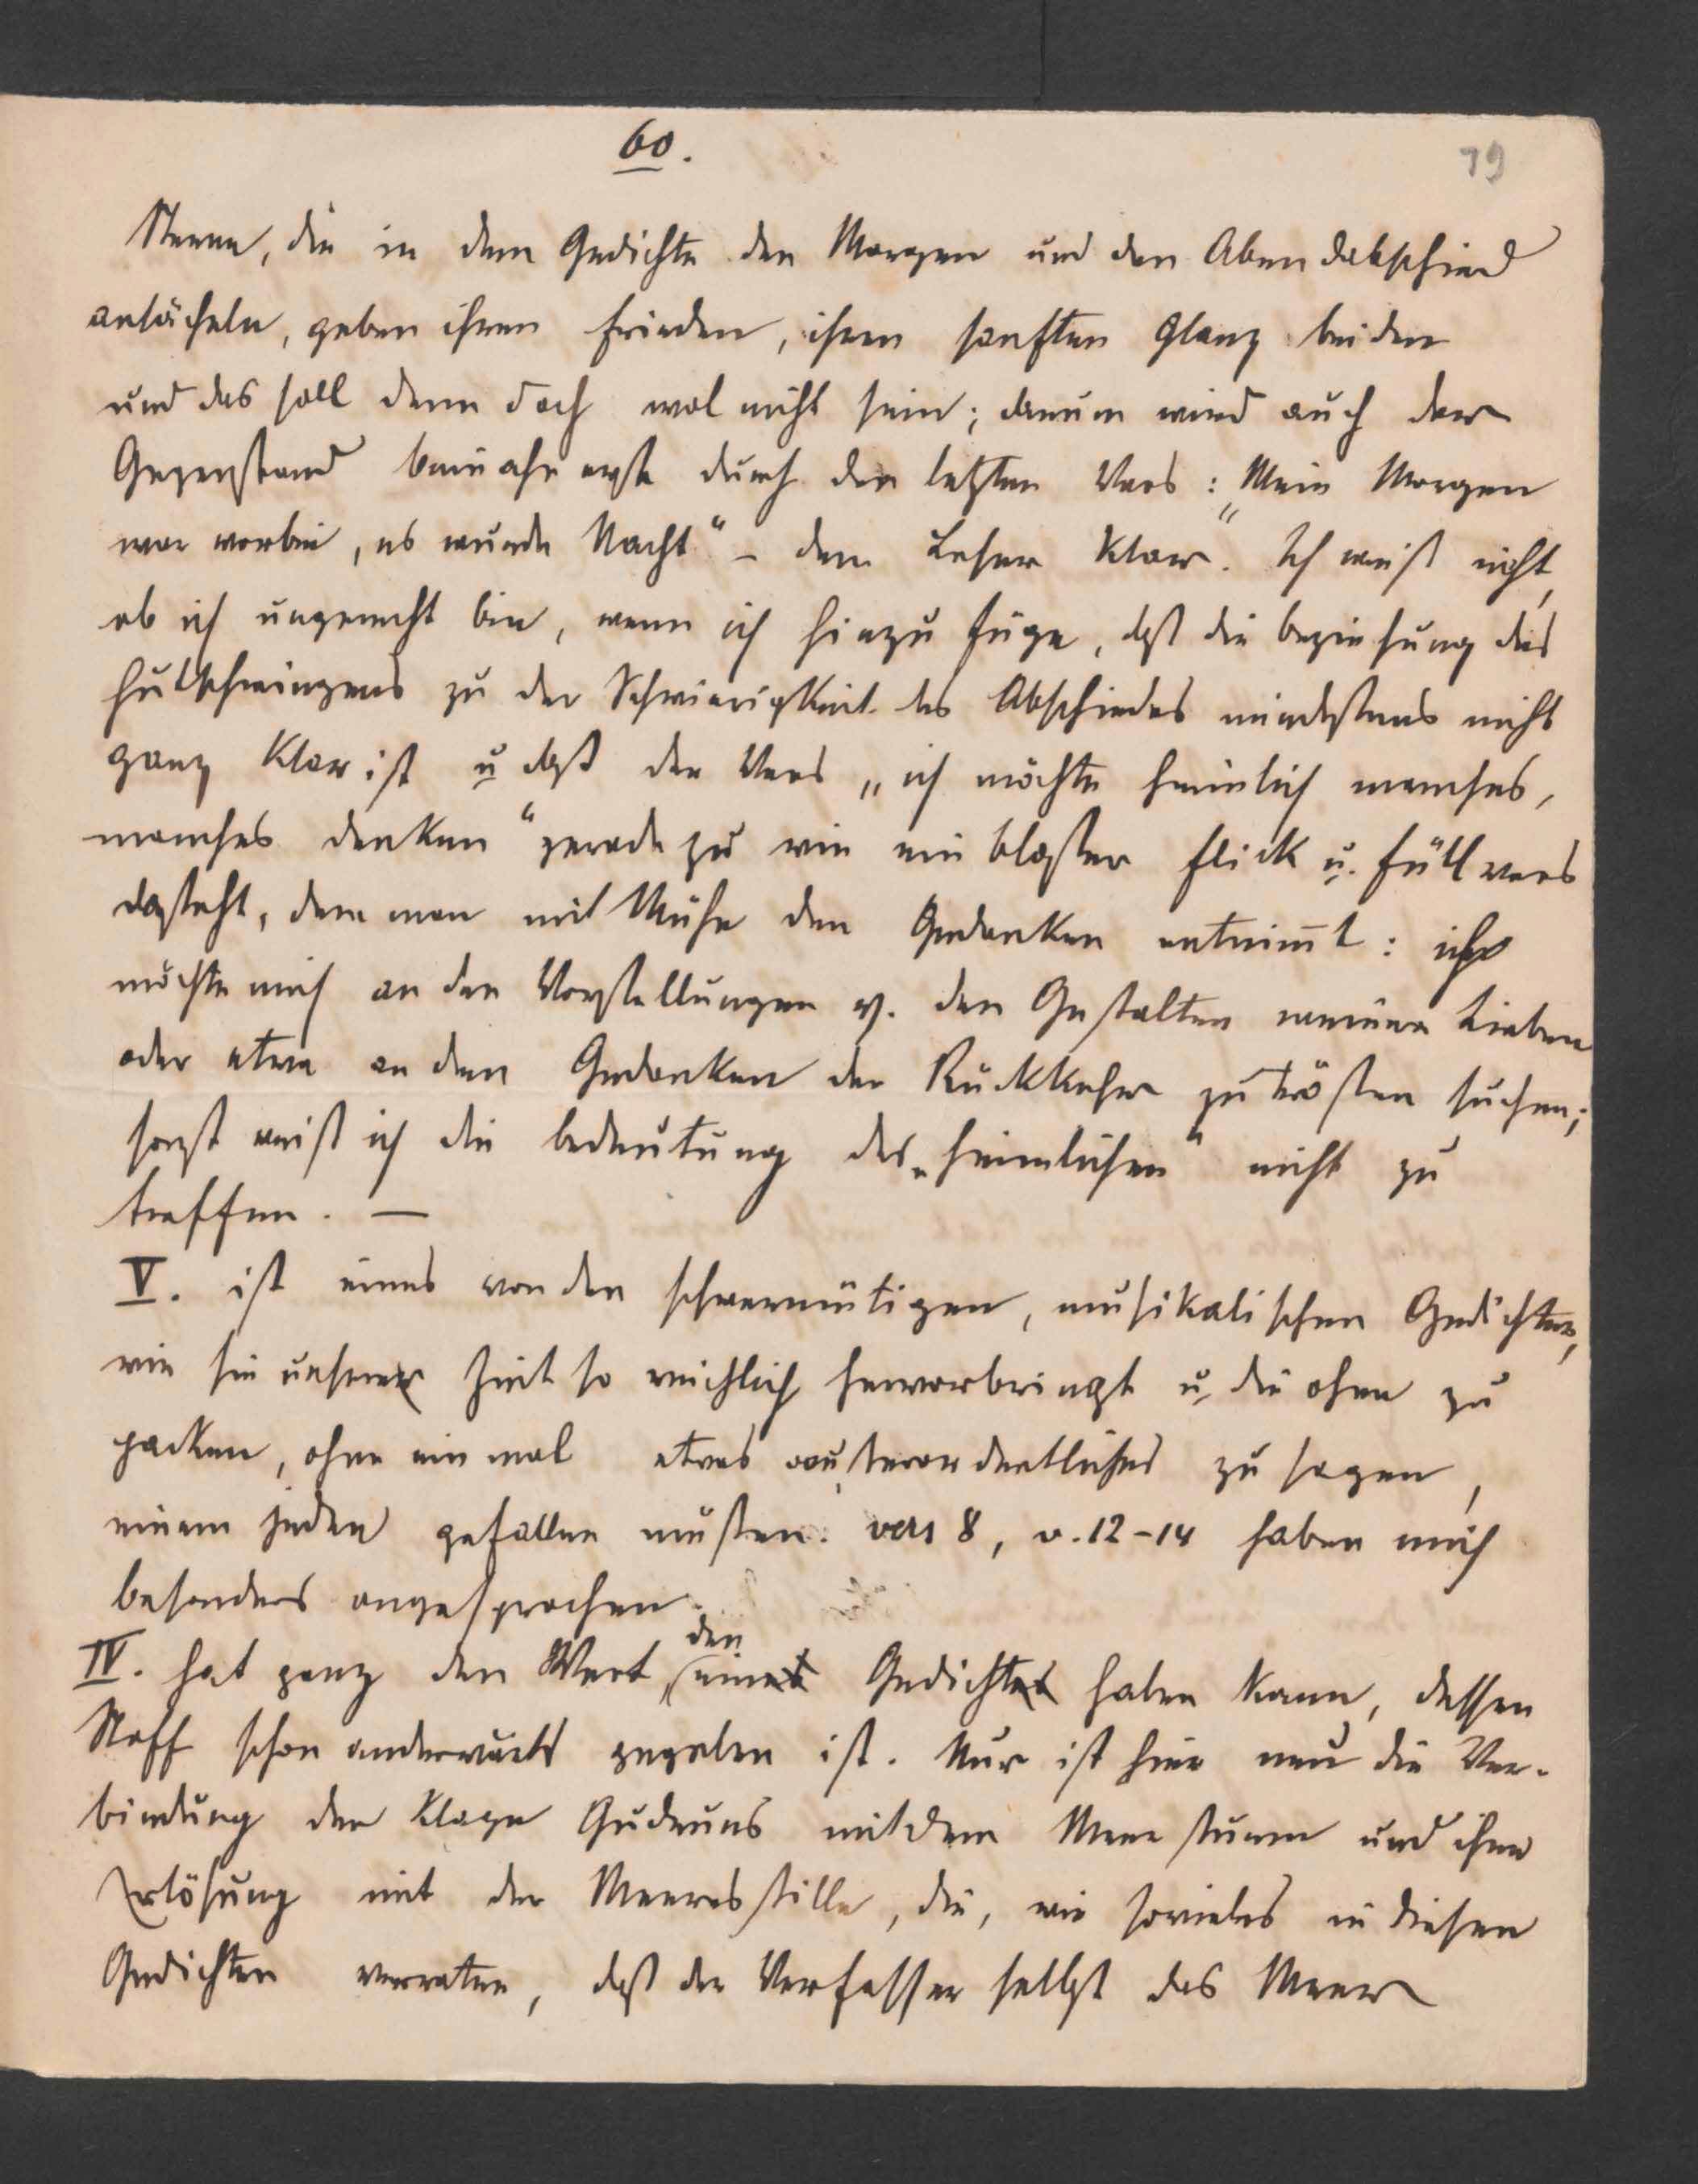 60.
79
Sterne, die in dem Gedichte den Morgen und den Abendabschied
anlächeln, geben ihren Frieden, ihren sanften Glanz beiden
und das soll denn doch wol nicht sein; darum wird auch der
Gegenstand beinahe erst durch den letzten Vers: „Mein Morgen
war vorbei, es wurde Nacht“ – dem Leser klar. Ich weiß nicht,
ob ich ungerecht bin, wenn ich hinzu füge, daß die beziehung des
hutschwingens zu der Schwierigkeit des Abschiedes mindestens nicht
ganz klar ist u daß der Vers „ich möchte heimlich manches,
manches denken“ gerade zu wie ein bloßer flick u. füll vers
dasteht, dem man mit Mühe den Gedanken entnim̄t: ich
möchte mich an den Vorstellungen v. den Gestalten meiner Lieben
oder etwa an dem Gedanken der Rückkehr zu trösten suchen;
sonst weiß ich die bedeutung des „heimlichen“ nicht zu
treffen. —
V. ist eines von den schwermütigen, musikalischen Gedichten,
wie sie unsere Zeit so reichlich hervorbringt u. die ohne zu
packen, ohne ein mal etwas außerordentliches zu sagen,
einem jeden gefallen müßen. vers 8, v. 12–14 haben mich
besonders angesprochen.
IV. hat ganz den Wert, den eines Gedichtes haben kann, dessen
Stoff schon anderwärts gegeben ist. Nur ist hier neu die Ver-
bindung der Klage Gudruns mit dem Meer sturm und ihrer
Erlösung mit der Meeresstille, die, wie sovieles in diesen
Gedichten verraten, daß der Verfasser selbst das Meer